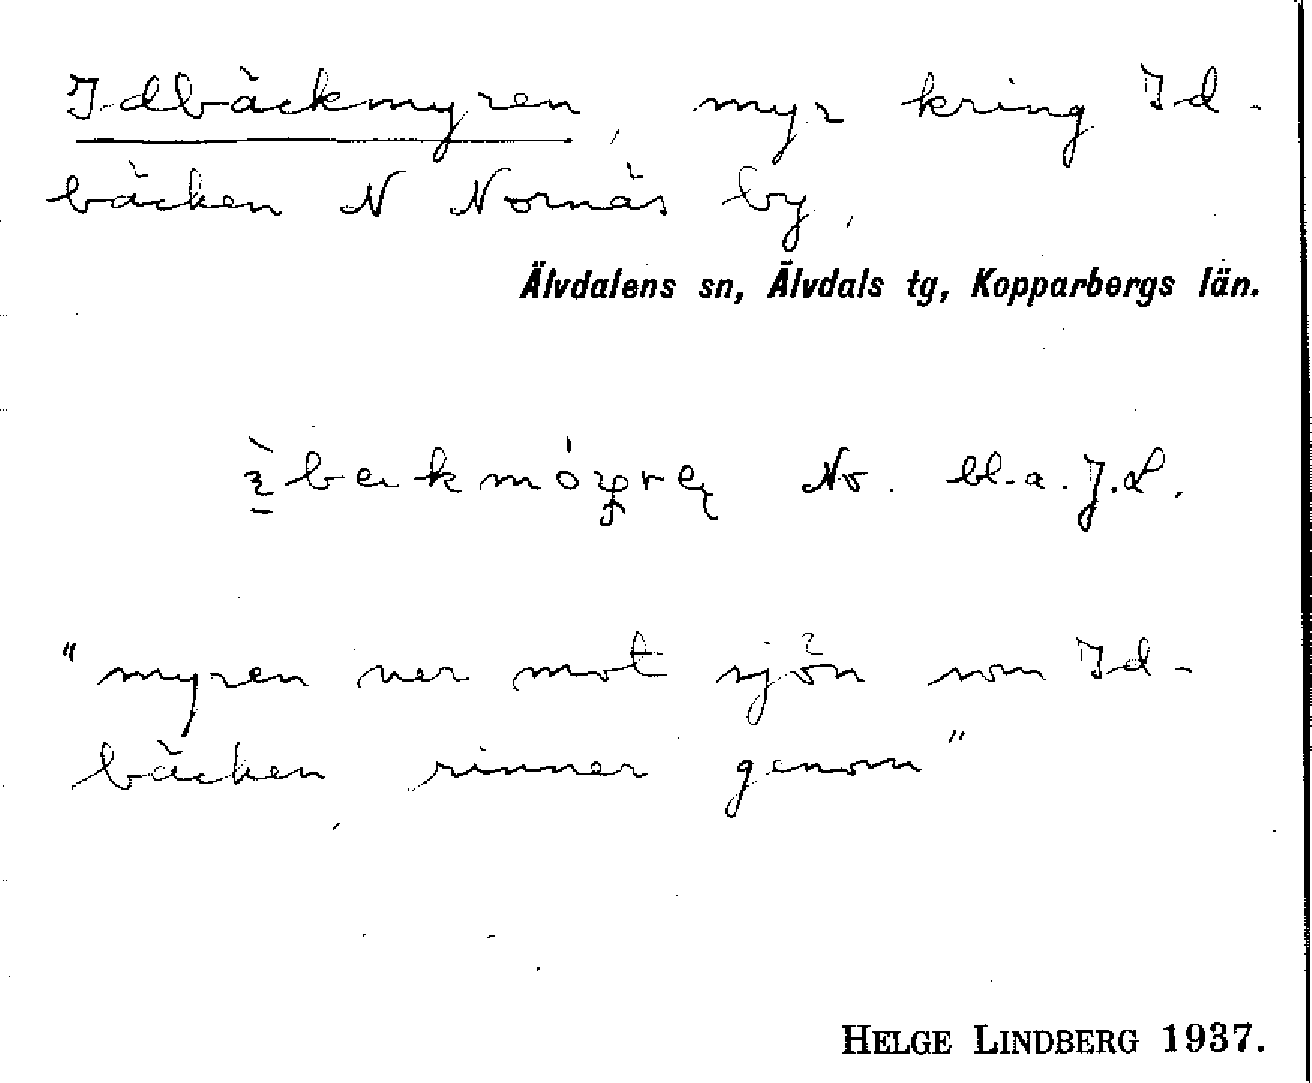 Idbäckmyren, myr kring Id-
bäcken N Nornäs by,
Älvdalens sn, Älvdals tg, Kopparbergs län.
No. bl.a. J.L.
"myren ner mot sjön som Id-
bäcken rinner genom"
HELGE LINDBERG 1937.